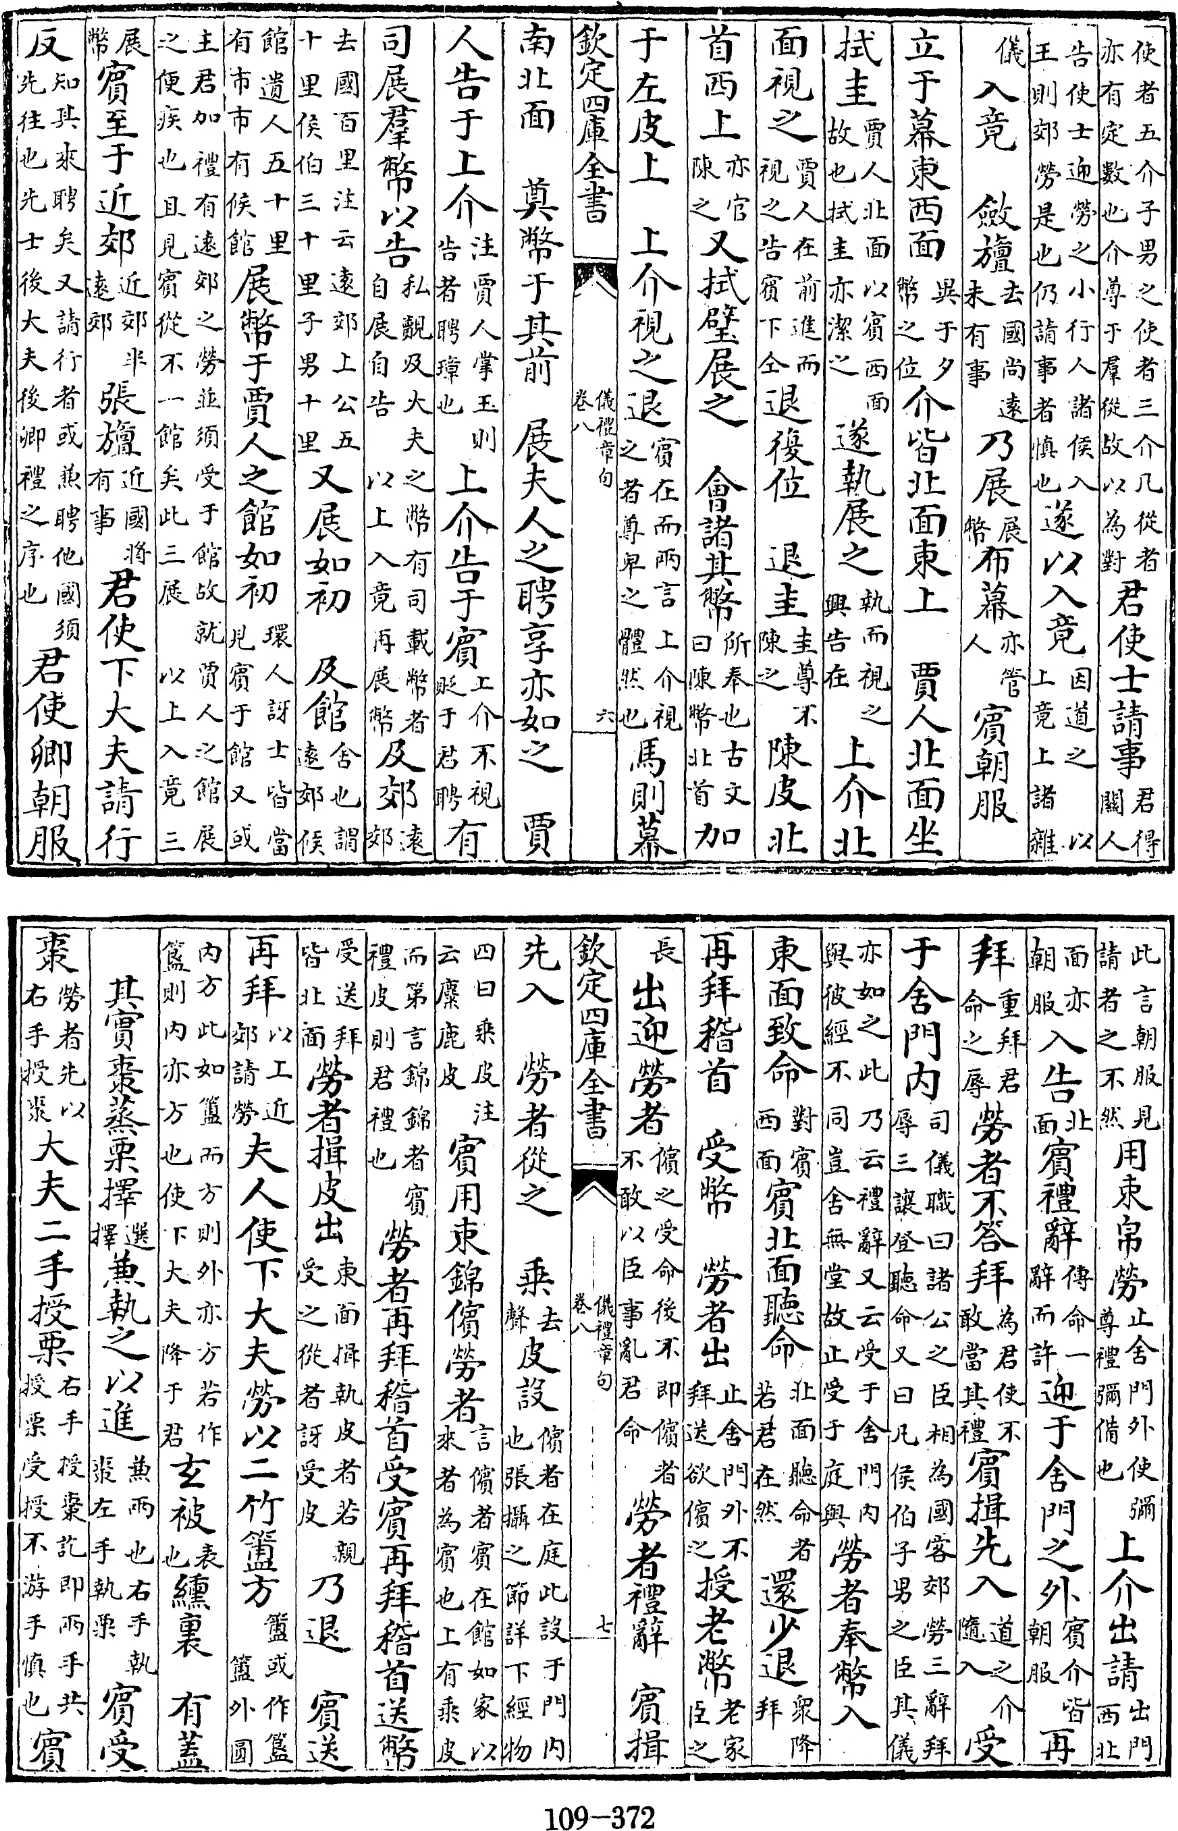 使者五介子男之使者三介凡從者亦有定數也介尊于羣從故以為對君使士請事君得關人
告使士迎勞之小行人諸侯入王則郊勞是也仍請事者慎也遂以入竟因道之以上竟上諸雜
儀入竟 斂旜去國尚遠未有事乃展展幣布幕亦管人賓朝服
立于幕東西面異于夕幣之位介皆北面東上 賈人北面坐
拭圭賈人北面以賓西面故也拭圭亦潔之遂執展之執而視之興告在上介北
面視之賈人在前進而視之告賓下仝退復位 退圭圭尊不陳之陳皮北
首西上亦官陳之又拭璧展之 會諸其幣所奉也古文曰陳幣北首加
于左皮上 上介視之退賓在而兩言上介視之者尊卑之體然也馬則幕
欽定四庫全書 儀禮章句卷八 六
南北面 奠幣于其前 展夫人之聘享亦如之 賈
人告于上介注賈人掌玉則告者聘璋也上介告于賓上介不視貶于君聘有
司展羣幣以告私覿及大夫之幣有司載幣者自展自告 以上入竟再展幣及郊遠郊
去國百里注云遠郊上公五十里侯伯三十里子男十里又展如初 及館舍也謂遠郊候
館遺人五十里有市市有候館展幣于賈人之館如初環人訝士皆當見賓于館又或
主君加禮有遠郊之勞並須受于館故就賈人之館展之便疾也且見賓從不一館矣此三展 以上入竟三
展幣賓至于近郊近郊半遠郊張旜近國將有事君使下大夫請行
反知其來聘矣又請行者或兼聘他國須先往也先士後大夫後卿禮之序也君使卿朝服
此言朝服見請者之不然用束帛勞止舍門外使彌尊禮彌備也上介出請出門西北
面亦朝服入告北面賓禮辭傳命一辭而許迎于舍門之外賓介皆朝服再
拜重拜君命之辱勞者不答拜為君使不敢當其禮賓揖先入道之介隨入受
于舍門內司儀職曰諸公之臣相為國客郊勞三辭拜辱三讓登聽命又曰凡侯伯子男之臣其儀
亦如之此乃云禮辭又云受于舍門內與彼經不同豈舍無堂故止受于庭與勞者奉幣入
東面致命對賓西面賓北面聽命北面聽命者若君在然還少退眾降拜
再拜稽首 受幣 勞者出止舍門外不拜送欲儐之授老幣老家臣之
長出迎勞者儐之受命後不即儐者不敢以臣事亂君命勞者禮辭 賓揖
欽定四庫全書 儀禮章句卷八 七
先入 勞者從之 乘去聲皮設儐者在庭此設于門內也張攝之節詳下經物
四曰乘皮注云麋鹿皮賓用束錦儐勞者言儐者賓在館如家以來者為賓也上有乘皮
而第言錦錦者賓禮皮則君禮也勞者再拜稽首受賓再拜稽首送幣
受送拜皆北面勞者揖皮出東面揖執皮者若親受之從者訝受皮乃退 賓送
再拜以上近郊請勞夫人使下大夫勞以二竹簠方簠或作簋簠外圓
內方此如簠而方則外亦方若作簋則內亦方也使下大夫降于君玄被表也纁裏 有蓋
其實棗蒸栗擇選擇兼執之以進兼兩也右手執棗左手執栗賓受
棗勞者先以右手授棗大夫二手授栗右手授棗訖即兩手共授栗受授不游手慎也賓
109-372